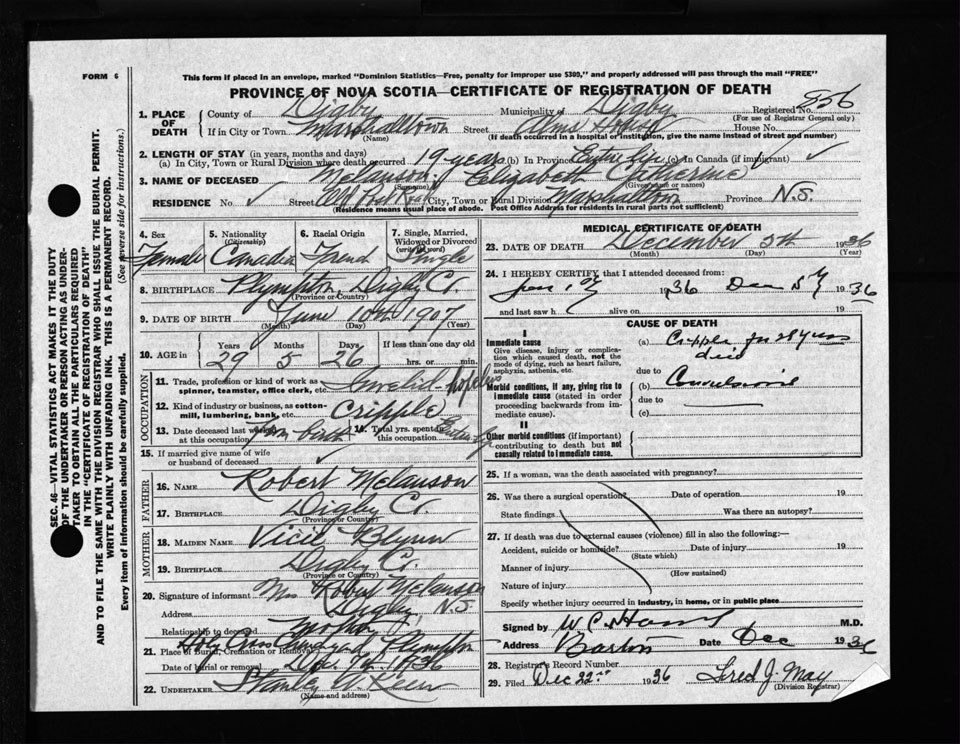 FORM 6
This form if placed in an envelope, marked "Dominion Statistics—Free, penalty for improper use $300," and properly addressed will pass through the mail "FREE"
PROVINCE OF NOVA SCOTIA—CERTIFICATE OF REGISTRATION OF DEATH
1. PLACE OF DEATH County of Digby Municipality of Digby Registered No. 856
(For use of Registrar General only)
If in City or Town Marshalltown Street Alms House House No.
(Name) (If death occurred in a hospital or institution, give the name instead of street and number)
2. LENGTH OF STAY (in years, months and days)
(a) In City, Town or Rural Division where death occurred 19 years (b) In Province Entire Life (c) In Canada (if immigrant) ✓
3. NAME OF DECEASED Melanson, Elizabeth Catherine
(Surname) (Given name or names)
RESIDENCE No. ✓ Street Old Post Road City, Town or Rural Division Marshalltown Province N.S.
(Residence means usual place of abode. Post Office Address for residents in rural parts not sufficient)
SEC. 46—VITAL STATISTICS ACT MAKES IT THE DUTY
OF THE UNDERTAKER OR PERSON ACTING AS UNDERTAKER TO OBTAIN ALL THE PARTICULARS REQUIRED
IN THE "CERTIFICATE OF REGISTRATION OF DEATH"
AND TO FILE THE SAME WITH THE DIVISION REGISTRAR WHO SHALL ISSUE THE BURIAL PERMIT.
WRITE PLAINLY WITH UNFADING INK. THIS IS A PERMANENT RECORD.
Every item of information should be carefully supplied. (See reverse side for instructions.)
4. Sex 5. Nationality (Citizenship) 6. Racial Origin 7. Single, Married, Widowed or Divorced (write the word)
Female Canadian French Single
8. BIRTHPLACE Plympton, Digby Co.
(Province or Country)
9. DATE OF BIRTH June 10th 1907
(Month) (Day) (Year)
10. AGE in Years Months Days If less than one day old
29 5 26 hrs. or min.
OCCUPATION
11. Trade, profession or kind of work as spinner, teamster, office clerk, etc. Invalid
12. Kind of industry or business, as cotton-mill, lumbering, bank, etc. Cripple
13. Date deceased last worked at this occupation From birth 14. Total yrs. spent in this occupation
15. If married give name of wife or husband of deceased ✓
FATHER
16. Name Robert Melanson
17. Birthplace Digby Co.
(Province or Country)
MOTHER
18. Maiden Name Flynn
19. Birthplace Digby Co.
(Province or Country)
20. Signature of informant Mrs Robert Melanson
Address Digby, N.S.
Relationship to deceased Mother
21. Place of Burial, Cremation or Removal Plympton
Date of burial or removal Dec. 7th 1936
22. UNDERTAKER Stanley
(Name and address)
MEDICAL CERTIFICATE OF DEATH
23. DATE OF DEATH December 5th 1936
(Month) (Day) (Year)
24. I HEREBY CERTIFY that I attended deceased from:
Jan 1st 1936 Dec 5th 1936
and last saw h alive on 19
CAUSE OF DEATH
I
Immediate cause
Give disease, injury or complication which caused death, not the mode of dying, such as heart failure, asphyxia, asthenia, etc.
(a) Cripple
died
due to
Morbid conditions, if any, giving rise to immediate cause (stated in order proceeding backwards from immediate cause).
(b) Convulsions
due to
(c)
II
Other morbid conditions (if important) contributing to death but not causally related to immediate cause.
25. If a woman, was the death associated with pregnancy?
26. Was there a surgical operation? Date of operation 19
State findings Was there an autopsy?
27. If death was due to external causes (violence) fill in also the following:—
Accident, suicide or homicide? Date of injury 19
(State which)
Manner of injury
(How sustained)
Nature of injury
Specify whether injury occurred in industry, in home, or in public place
Signed by M.D.
Barton Date Dec 1936
28. Registrar's Record Number
29. Filed Dec 22nd 1936 Fred J. May
(Division Registrar)